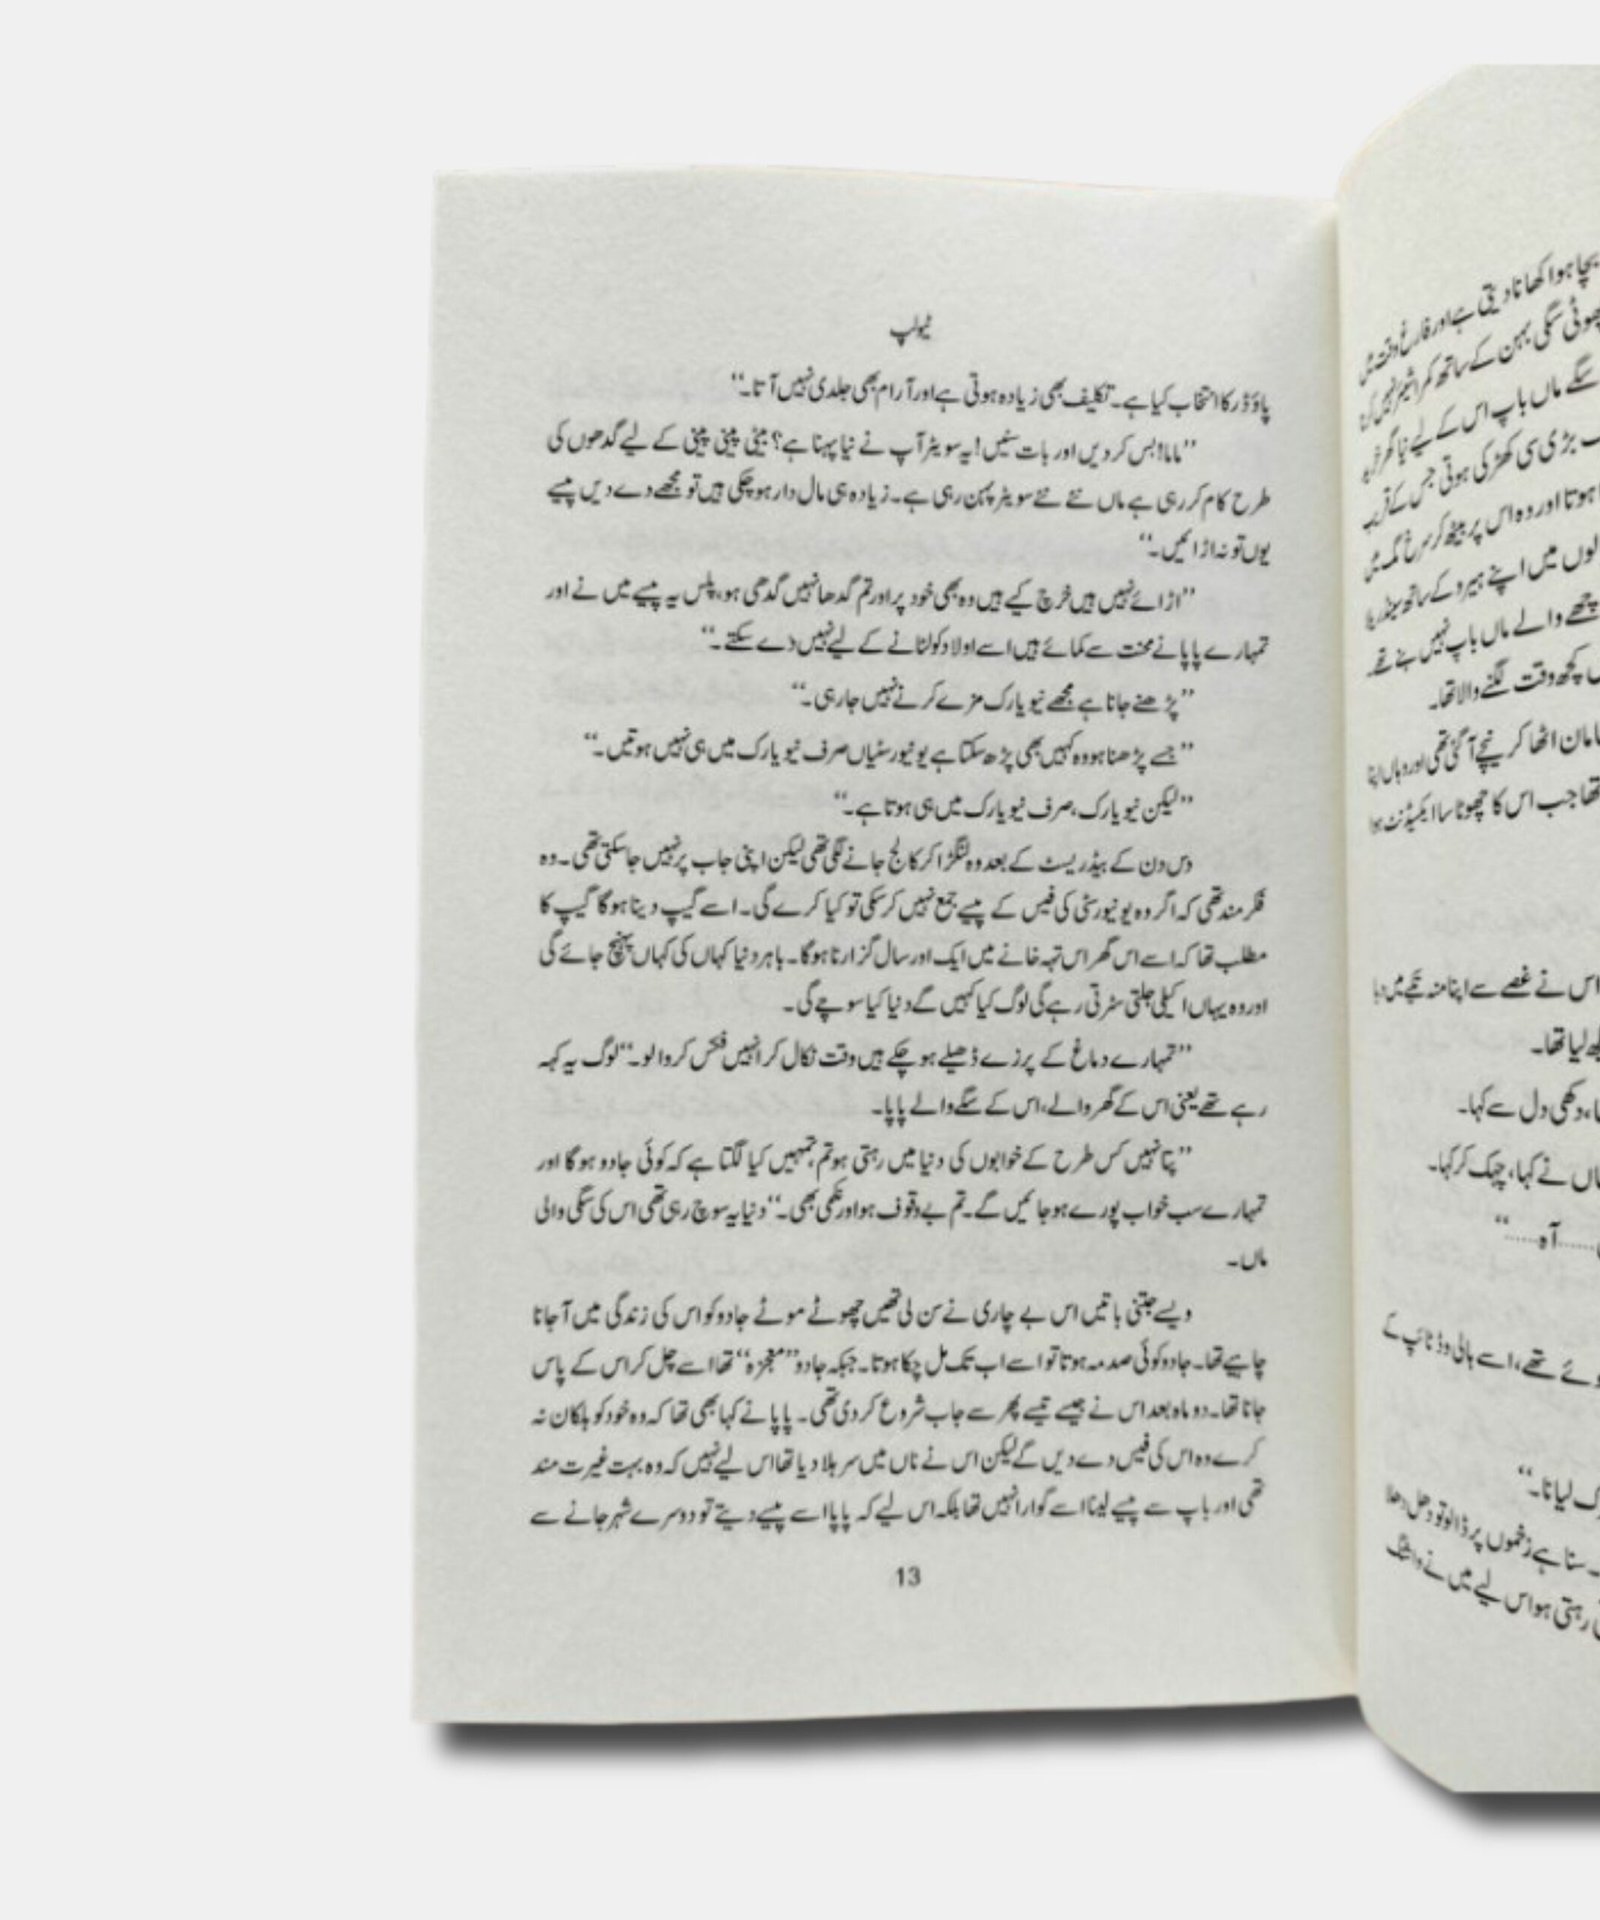 ٹیولپ
پاؤڈر کا انتخاب کیا ہے۔ تکلیف بھی زیادہ ہوتی ہے اور آرام بھی جلدی نہیں آتا۔‘‘
’’ماما! بس کر دیں اور بات سنیں! یہ سویٹر آپ نے نیا پہنا ہے؟ بیٹی پینی پینی کے لیے گدھوں کی
طرح کام کر رہی ہے ماں نئے نئے سویٹر پہن رہی ہے۔ زیادہ ہی مال دار ہو چکی ہیں تو مجھے دے دیں پیسے
یوں تو نہ اڑائیں۔‘‘
’’اڑائے نہیں ہیں خرچ کیے ہیں وہ بھی خود پر اور تم گدھا نہیں گدھی ہو، پلس یہ پیسے میں نے اور
تمہارے پاپا نے محنت سے کمائے ہیں اسے اولاد کو لٹانے کے لیے نہیں دے سکتے۔‘‘
’’پڑھنے جانا ہے مجھے نیویارک مزے کرنے نہیں جا رہی۔‘‘
’’جسے پڑھنا ہو وہ کہیں بھی پڑھ سکتا ہے یونیورسٹیاں صرف نیویارک میں ہی نہیں ہوتیں۔‘‘
’’لیکن نیویارک، صرف نیویارک میں ہی ہوتا ہے۔‘‘
دس دن کے بیڈ ریسٹ کے بعد وہ لنگڑا کر کالج جانے لگی تھی لیکن اپنی جاب پر نہیں جا سکتی تھی۔ وہ
فکر مند تھی کہ اگر وہ یونیورسٹی کی فیس کے پیسے جمع نہیں کر سکی تو کیا کرے گی۔ اسے گیپ دینا ہوگا گیپ کا
مطلب تھا کہ اسے اس گھر اس تہہ خانے میں ایک اور سال گزارنا ہوگا۔ باہر دنیا کہاں کی کہاں پہنچ جائے گی
اور وہ یہاں اکیلی جلتی سڑتی رہے گی لوگ کیا کہیں گے دنیا کیا سوچے گی۔
’’تمہارے دماغ کے پرزے ڈھیلے ہو چکے ہیں وقت نکال کر انہیں فکس کروا لو۔‘‘ لوگ یہ کہہ
رہے تھے یعنی اس کے گھر والے، اس کے سگے والے پاپا۔
’’پتا نہیں کس طرح کے خوابوں کی دنیا میں رہتی ہو تم، تمہیں کیا لگتا ہے کہ کوئی جادو ہوگا اور
تمہارے سب خواب پورے ہو جائیں گے۔ تم بے وقوف ہو اور نکمی بھی۔‘‘ دنیا یہ سوچ رہی تھی اس کی سگی والی
ماں۔
ویسے جتنی باتیں اس بے چاری نے سن لی تھیں چھوٹے موٹے جادو کو اس کی زندگی میں آ جانا
چاہیے تھا۔ جادو کوئی صدمہ ہوتا تو اسے اب تک مل چکا ہوتا۔ جبکہ جادو ’’معجزہ‘‘ تھا اسے چل کر اس کے پاس
جانا تھا۔ دو ماہ بعد اس نے جیسے تیسے پھر سے جاب شروع کر دی تھی۔ پاپا نے کہا بھی تھا کہ وہ خود کو ہلکان نہ
کرے وہ اس کی فیس دے دیں گے لیکن اس نے ناں میں سر ہلا دیا تھا اس لیے نہیں کہ وہ بہت غیرت مند
تھی اور باپ سے پیسے لینا اسے گوارا نہیں تھا بلکہ اس لیے کہ پاپا اسے پیسے دیتے تو دوسرے شہر جانے سے
13
بچا ہوا کھانا دیتی ہے اور فارغ وقت میں
چھوٹی سگی بہن کے ساتھ کمرا شیئر نہیں کرنا
سگے ماں باپ اس کے لیے نیا گھر
بڑی سی کھڑکی ہوتی جس کے قریب
ہوتا اور وہ اس پر بیٹھ کر سرخ مگ میں
میں اپنے ہیرو کے ساتھ
اچھے والے ماں باپ نہیں بنے تھے
کچھ وقت لگنے والا تھا۔
سامان اٹھا کر نیچے آ گئی تھی اور وہاں اپنا
تھا جب اس کا چھوٹا سا ایکسیڈنٹ ہوا
اس نے غصے سے اپنا منہ تکیے میں دبا
لیا تھا۔
دکھی دل سے کہا۔
ماں نے کہا، چپک کر کہا۔
......آہ......‘‘
تھے، اسے ہالی وڈ ٹائپ کے
لیانا۔‘‘
سنا ہے زخموں پر ڈالو تو
رہتی ہو اس لیے میں نے